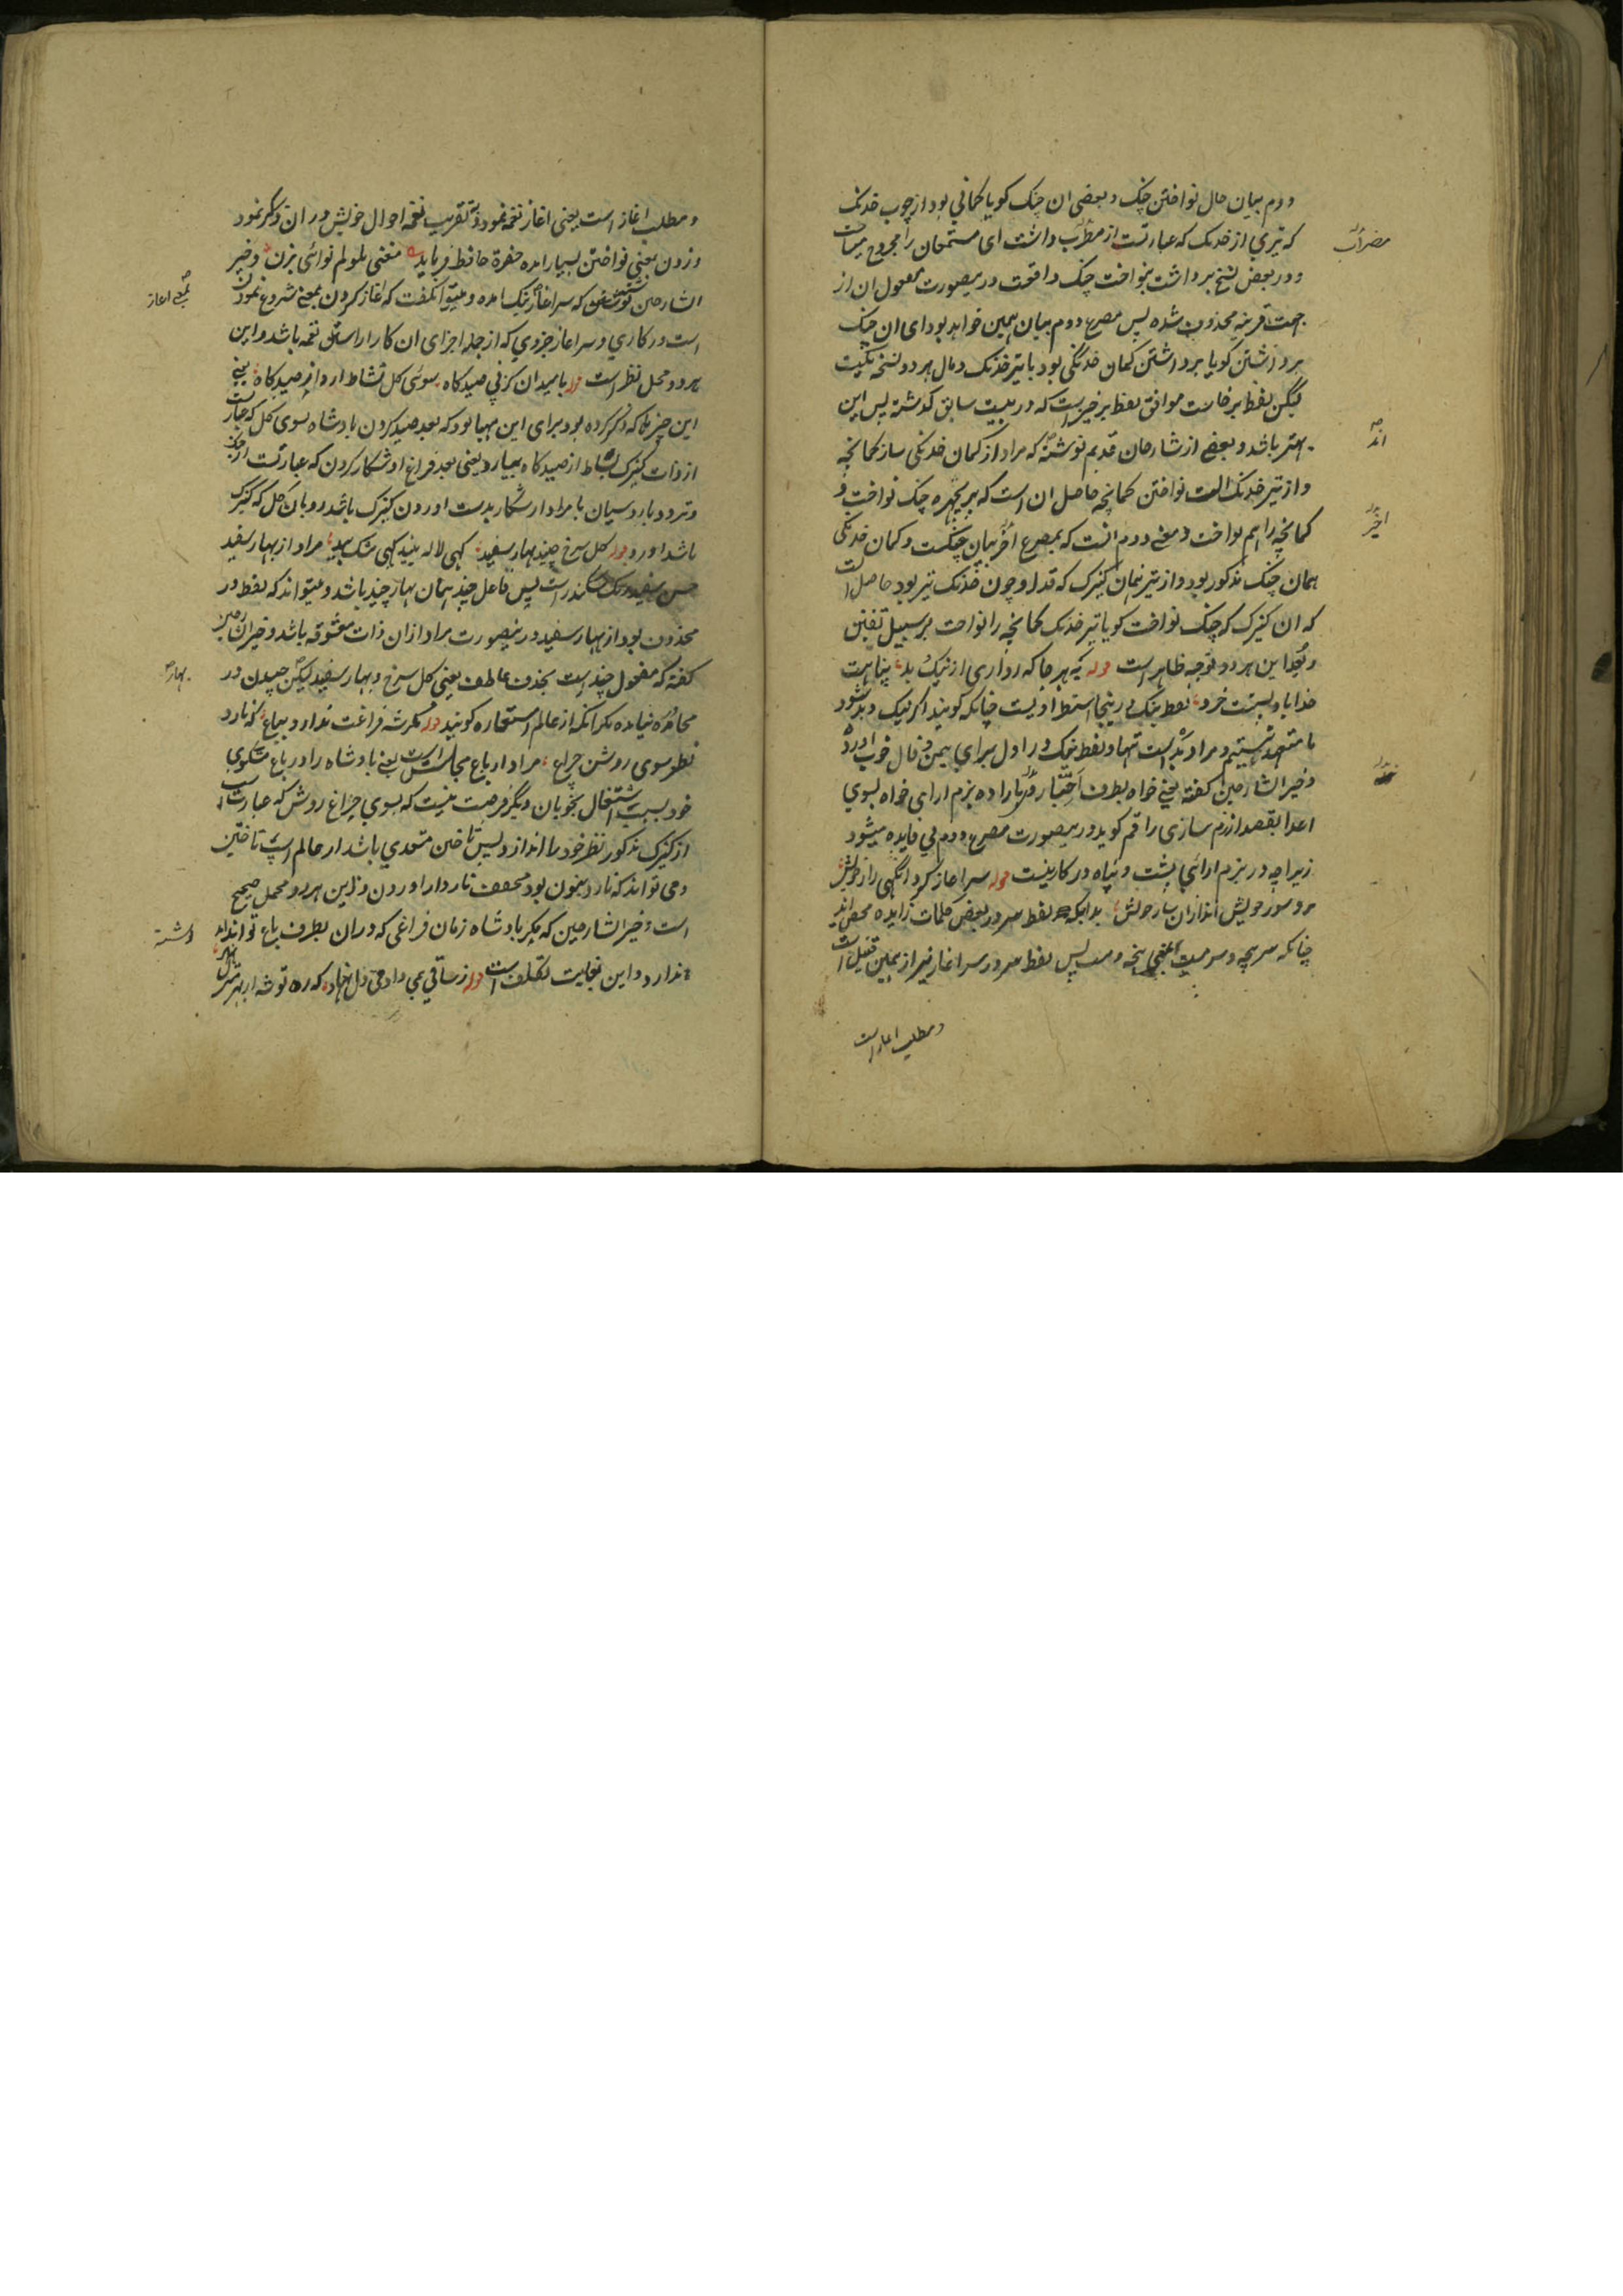 دوم بیان حال نواختن چنک و بعضی ان چنک کویا کمانی بود از چوب خدنک
که تیری از خدنک که عبارتست از مطرب داشت ای مستمعان را مجروح میساخت
مضراب
و در بعض نسخ برداشت بنواخت چنک واقعت درینصورت معمول ان از
جهت قرینه محذوف شده پس مصرع دوم بیان همین خواهد بود ای ان چنک
برداشتن کویا برداشتن کمان خدنکی بود با تیر خدنک و مال هر دو نسخه یکیست
لیکن لفظ برخاست موافق لفظ برخیز است که در بیت سابق کذشته پس این
بهتر باشد و بعضی از شارحان قدیم نوشته که مراد از کمان خدنکی ساز کمانچه
اند
و از تیر خدنک الت نواختن کمانچه حاصل ان است که پریچهره چنک نواخت و
کمانچه را هم نواخت و معنی دوم انست که بمصرع اخر بیان چنکست و کمان خدنکی
اخیر
همان چنک مذکور بود و از تیر همان کنیزک که قد او چون خدنک تیر بود حاصل انست
که ان کنیزک که چنک نواخت کویا تیر خدنک کمانچه را نواخت بر سبیل تفنن
و بعد این هر دو توجه ظاهر است قوله که هر جا که رو اری از نیک و بد پناهت
خدا باد پشتت خرد لفظ نیک درینجا استطرادیست چنانکه کویند اکر نیک و بد شود
ما متعهد نیستیم و مراد بد است تنها و لفظ نیک در اول برای یمن و فال خوب اورده
و خیر الشارحین کفته یعنی خواه بطرف احبا رو اری باراده بزم ارای خواه بسوی
اعدا بقصد رزم سازی راقم کوید درینصورت مصرع دوم بی فایده میشود
زیراچه در بزم ارائی پشت و پناه در کار نیست قوله سراغاز کرد انکهی راز خویش
برو سور خویش انداز ان ساز خویش بدانکه لفظ سر در بعض کلمات زایده محض اید
چنانکه سرپنجه و سرمست بمعنی پنجه و مست پس لفظ سر در سراغاز نیز از همین قبیل است
و مطلب اغاز است
و مطلب اغاز است یعنی اغاز نغمه نمود و بتقریب نغمه احوال خویش در ان ذکر نمود
و زدن بمعنی نواختن بسیار امده حضرة حافظ فرماید مغنی ملولم نوائی بزن و خیر
الشارحین نوشته که سراغاز نیک امده و میتوان کفت که اغاز کردن بمعنی شروع نمودن
بمعنی اغاز
است در کاری و سراغاز جزوی که از جمله اجزای ان کار را سبق نغمه باشد و این
هر دو محل نظر است قوله بامید ان کز پی صیدکاه سوی کل نشاط ارد از صیدکاه یعنی
این چیزها که ذکر کرده بود برای این مهیا بود که بعد صید کردن بادشاه بسوی کل که عبارتست
از ذات کنیزک نشاط از صیدکاه بیارد یعنی بعد فراغ او شکار کردن که عبارتست از جنک
و تردد با روسیان یا مراد از شکار بدست اوردن کنیزک باشد رو بان کل که کنیزک
باشد اورد قوله کل سرخ چیند بهار سفید کهی لاله بیند کهی مشک بید مراد از بهار سفید
حسن سفید رنک سکندر است پس فاعل چیند همان بهار چیند باشد و میتواند که لفظ در
محذوف بود از بهار سفید درینصورت مراد ازان ذات معشوقه باشد و خیر الشارحین
کفته که مفعول چیند است بحذف عاطف یعنی کل سرخ و بهار سفید لیکن چیدن در
بهار
محاوره نیامده مکر انکه از عالم استعاره کویند قوله مکر شه فراغت ندارد بباغ که نارد
نظر سوی روشن چراغ مراد از باغ مجالست است یعنی بادشاه را در باغ مشکوی
خود بسبب اشتغال بخوبان دیکر فرصت نیست که بسوی چراغ روشن که عبارتست
از کنیزک مذکور نظر خود را اندازد پس تاختن متعدی باشد از عالم اسپ تاختن
و می تواند که نارد بنون بود مخفف نارد از اوردن و این هر دو محمل صحیح
است و خیر الشارحین که مکر بادشاه زمان فراغی که دران بطرف باغ تواند اید
نوشته
ندارد و این بغایت تکلف است قوله ز ساقی بمی داد فی دل نهاد که ره توشه از بهر منزل نهاد